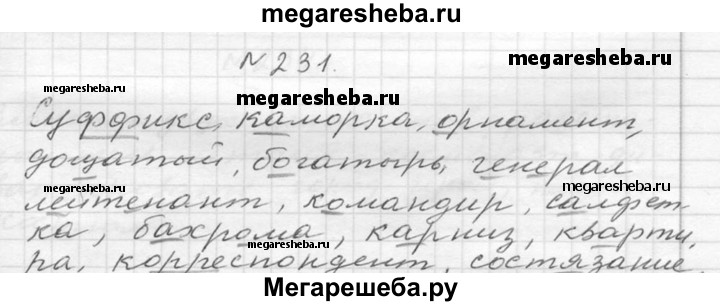 megaresheba.ru
№ 231.
megaresheba.ru
megaresheba.ru
megaresheba.ru
Суффикс, каморка, орнамент,
дощатый, богатырь, генерал
megaresheba.ru
megaresheba.ru
лейтенант, командир, салфет-
ка, бахрома, карниз, кварти-
megaresheba.ru
ра, корреспондент, состязание,
Мегарешеба.ру